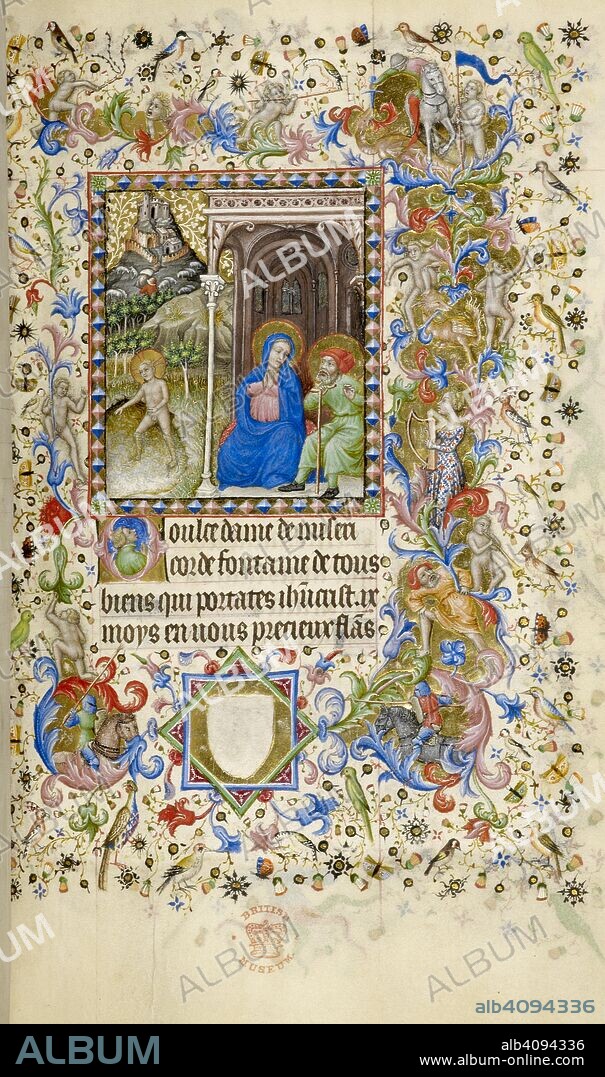 Doulce dame de miseri
corde fontaine de tous
biens qui portates ihucrist. ix
moys en uous precieux flās
BRITISH
MUSEUM
alb4094336
ALBUM
alb4094336
www.album-online.com